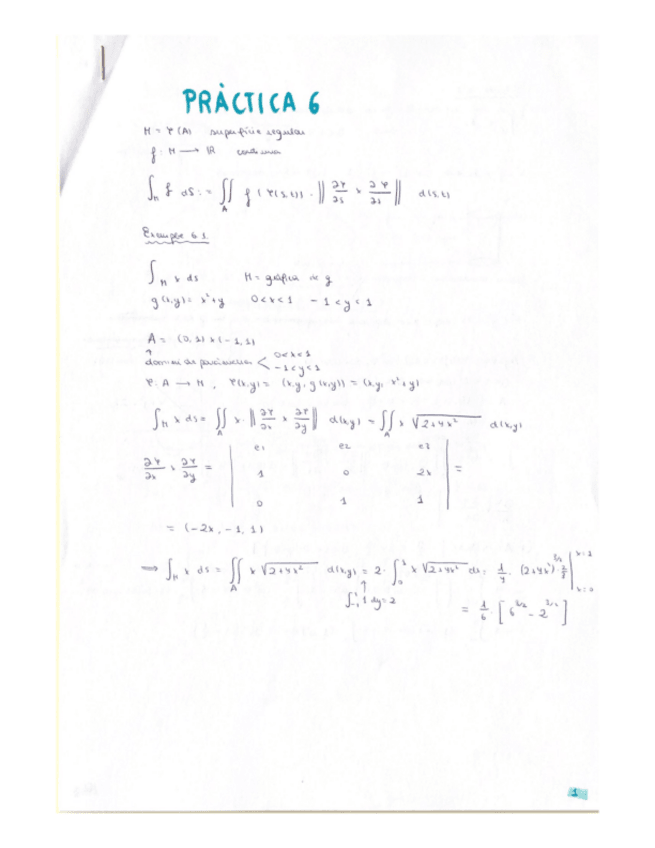 PRÀCTICA 6
M = φ(A) superfície regular
f: M → ℝ contínua
∫_M f dS := ∬_A f(φ(s,t)) · ‖ ∂φ/∂s × ∂φ/∂s ‖ d(s,t)
Exemple 6.1.
∫_M x dS M = gràfica de g
g(x,y) = x²+y 0<x<1 -1<y<1
A = (0,1) x (-1,1)
↑
domini de parametrització < 0<x<1
-1<y<1
φ: A → M, φ(x,y) = (x,y, g(x,y)) = (x,y, x²+y)
∫_M x dS = ∬_A x · ‖ ∂φ/∂x × ∂φ/∂y ‖ d(x,y) = ∬_A x √(2+4x²) d(x,y)
∂φ/∂x × ∂φ/∂y = | e1 e2 e3
1 0 2x
0 1 1 | =
= (-2x, -1, 1)
⟹ ∫_M x dS = ∬_A x √(2+4x²) d(x,y) = 2 · ∫_0^1 x √(2+4x²) dx = 1/4 · (2+4x²)^{3/2} · 2/3 |_{x=0}^{x=1}
↑
∫_{-1}^1 1 dy = 2
= 1/6 · [6^{3/2} - 2^{3/2}]
1